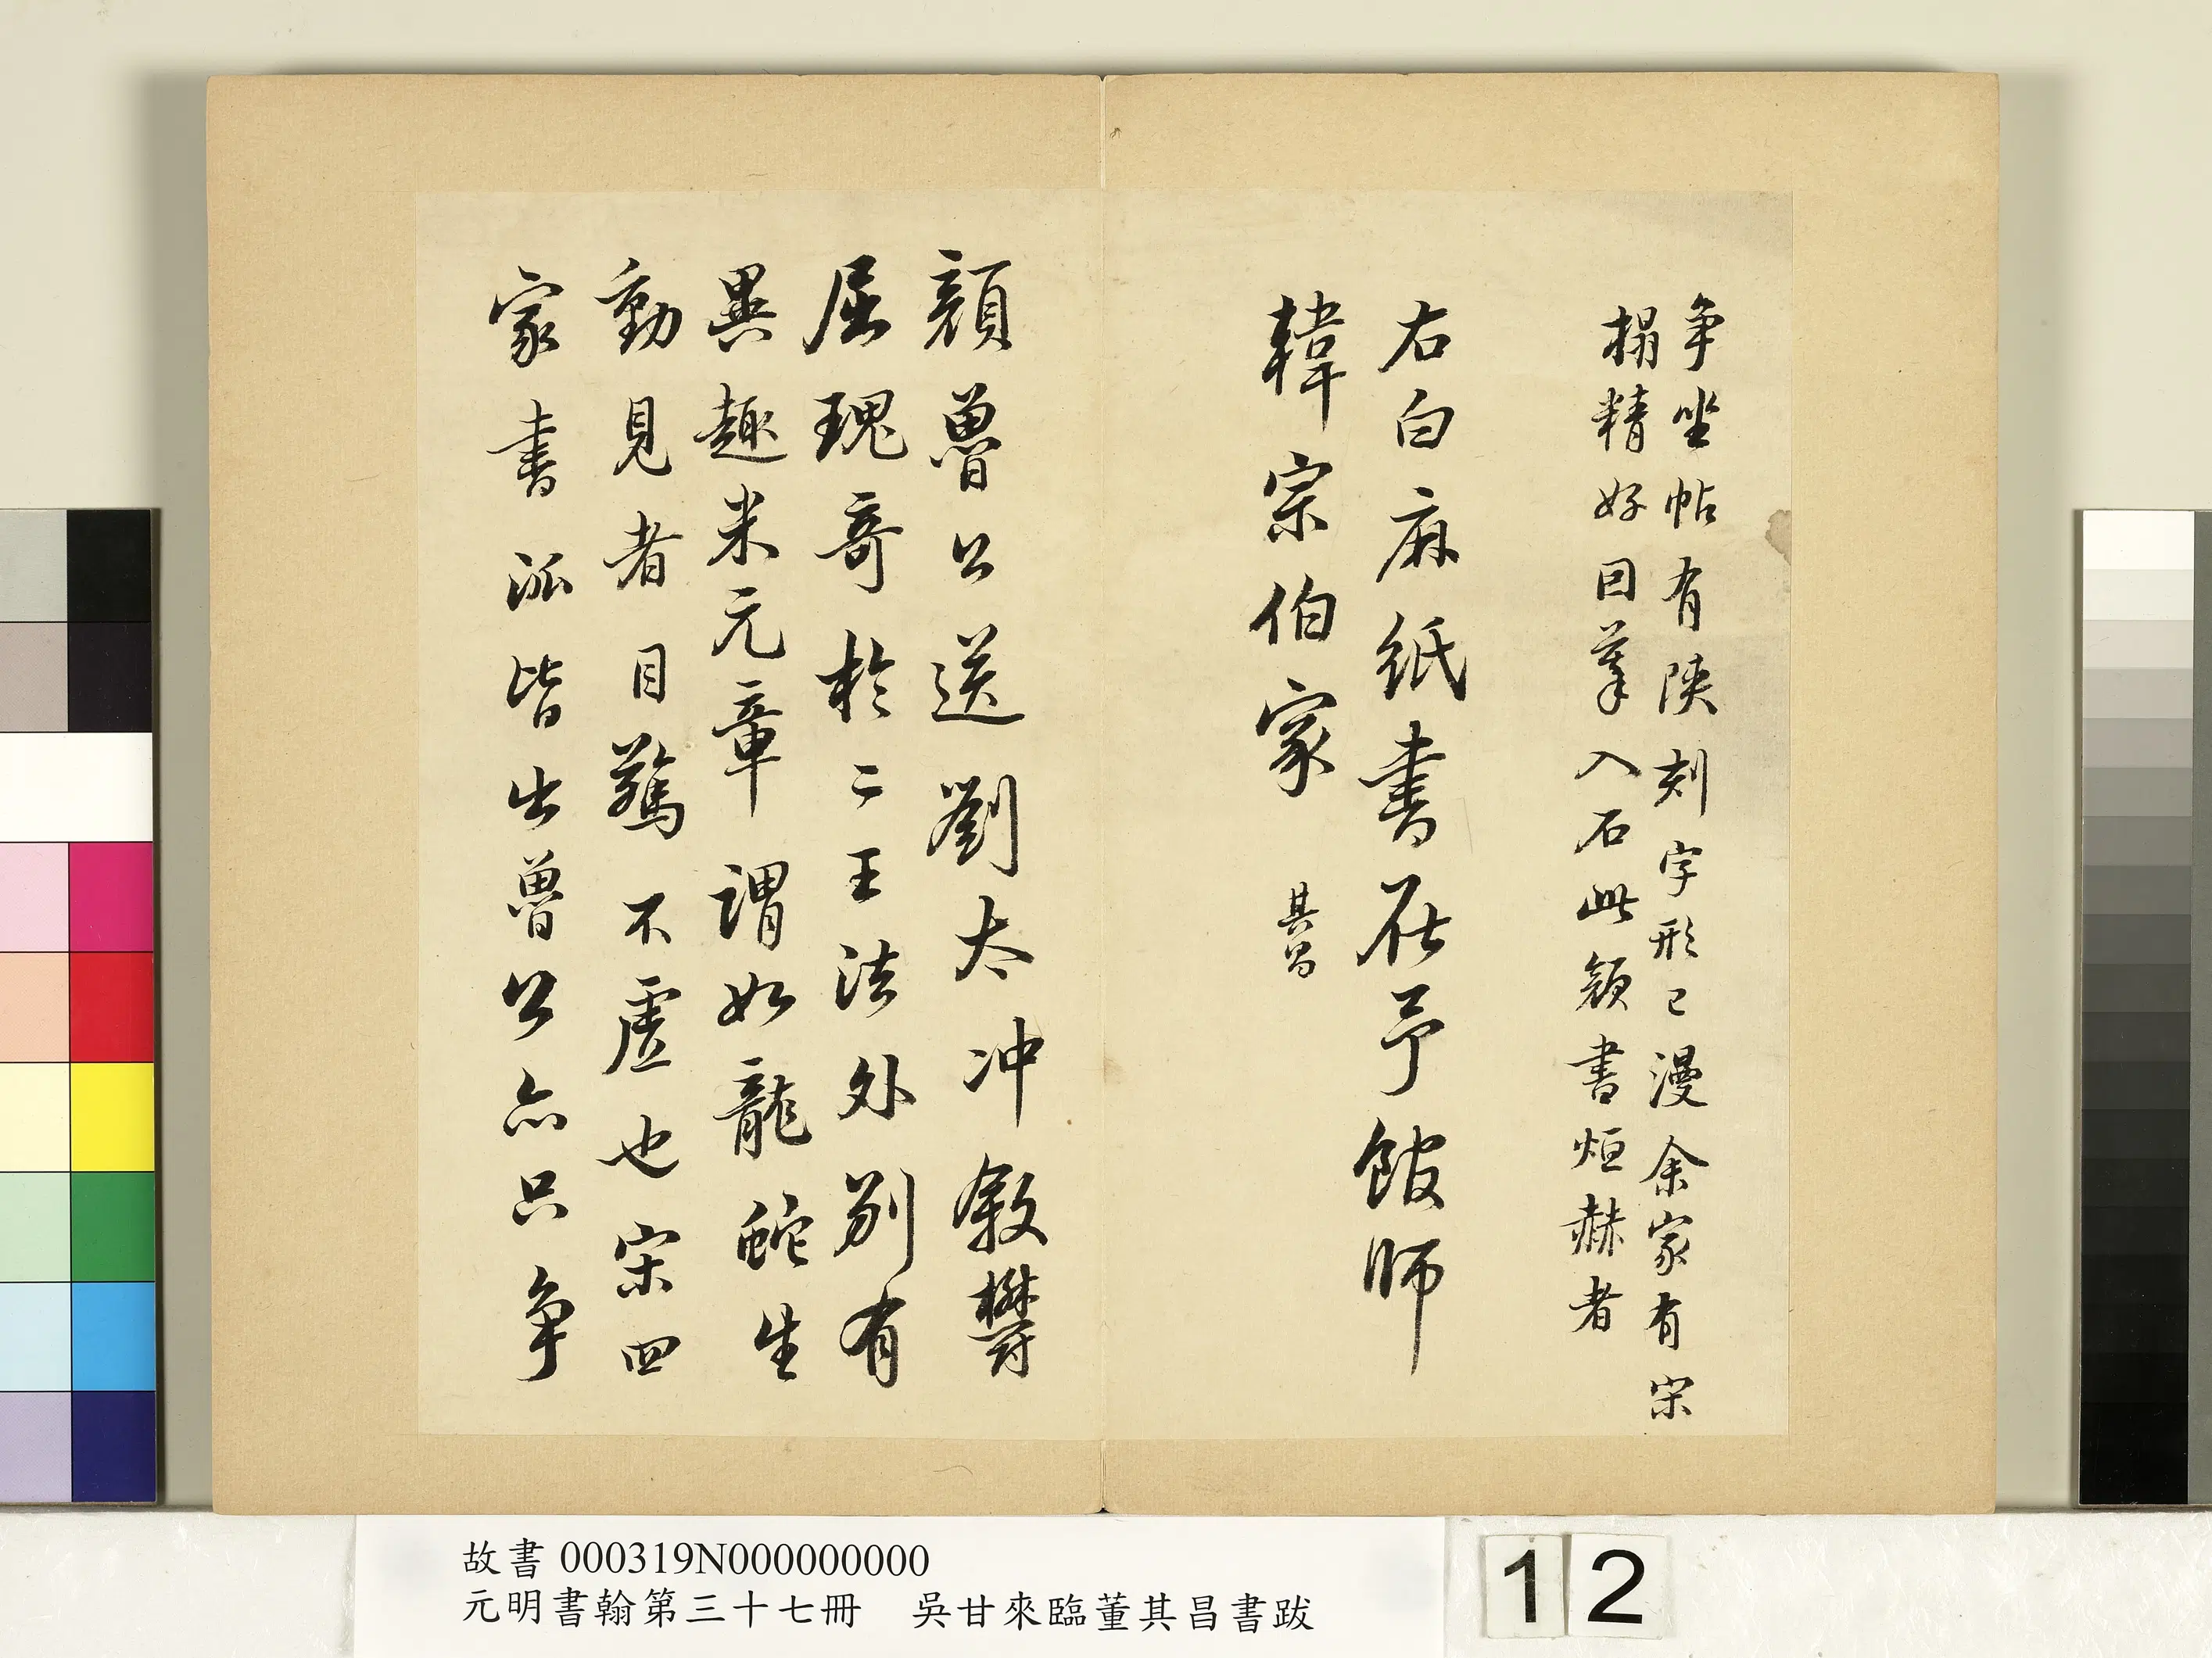 争坐帖有陝刻字形已漫余家有宋
榻精好因摹入石此顏書烜赫者
右白麻紙書在予館師
韓宗伯家 其昌
顏魯公送劉太冲敘欎
屈瑰奇於二王法外別有
異趣米元章謂如龍蛇生
動見者目驚不虛也宋四
家書派皆出魯公亦只争
故書 000319N000000000
元明書翰第三十七冊 吳甘來臨董其昌書跋
12